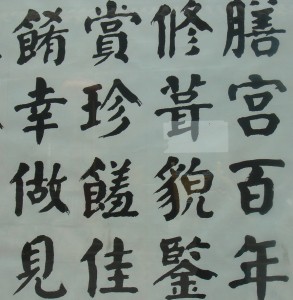 膳宮百年
修葺貌鑒
賞珍饈佳
餚幸做見